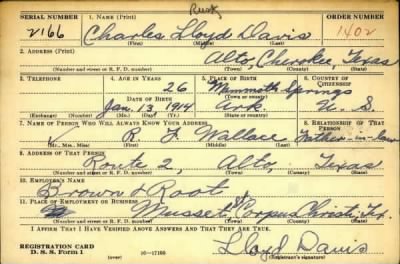 Rusk
SERIAL NUMBER 1. NAME (Print) ORDER NUMBER
2166 Charles Lloyd Davis 1402
(First) (Middle) (Last)
2. ADDRESS (Print)
Alto, Cherokee, Texas
(Number and street or R. F. D. number) (Town) (County) (State)
3. TELEPHONE 4. AGE IN YEARS 5. PLACE OF BIRTH 6. COUNTRY OF CITIZENSHIP
26 Mammoth Springs
DATE OF BIRTH (Town or county)
Jan. 13, 1914 Ark. U. S.
(Exchange) (Number) (Mo.) (Day) (Yr.) (State or country)
7. NAME OF PERSON WHO WILL ALWAYS KNOW YOUR ADDRESS 8. RELATIONSHIP OF THAT PERSON
R. F. Wallace Father-in-law
(Mr., Mrs., Miss) (First) (Middle) (Last)
9. ADDRESS OF THAT PERSON
Route 2, Alto, Texas
(Number and street or R. F. D. number) (Town) (County) (State)
10. EMPLOYER'S NAME
Brown & Root
11. PLACE OF EMPLOYMENT OR BUSINESS
Corpus Christi, Tex.
(Number and street or R. F. D. number) (Town) (County) (State)
I AFFIRM THAT I HAVE VERIFIED ABOVE ANSWERS AND THAT THEY ARE TRUE.
REGISTRATION CARD
D. S. S. Form 1 (over) 16—17105 Lloyd Davis
(Registrant's signature)